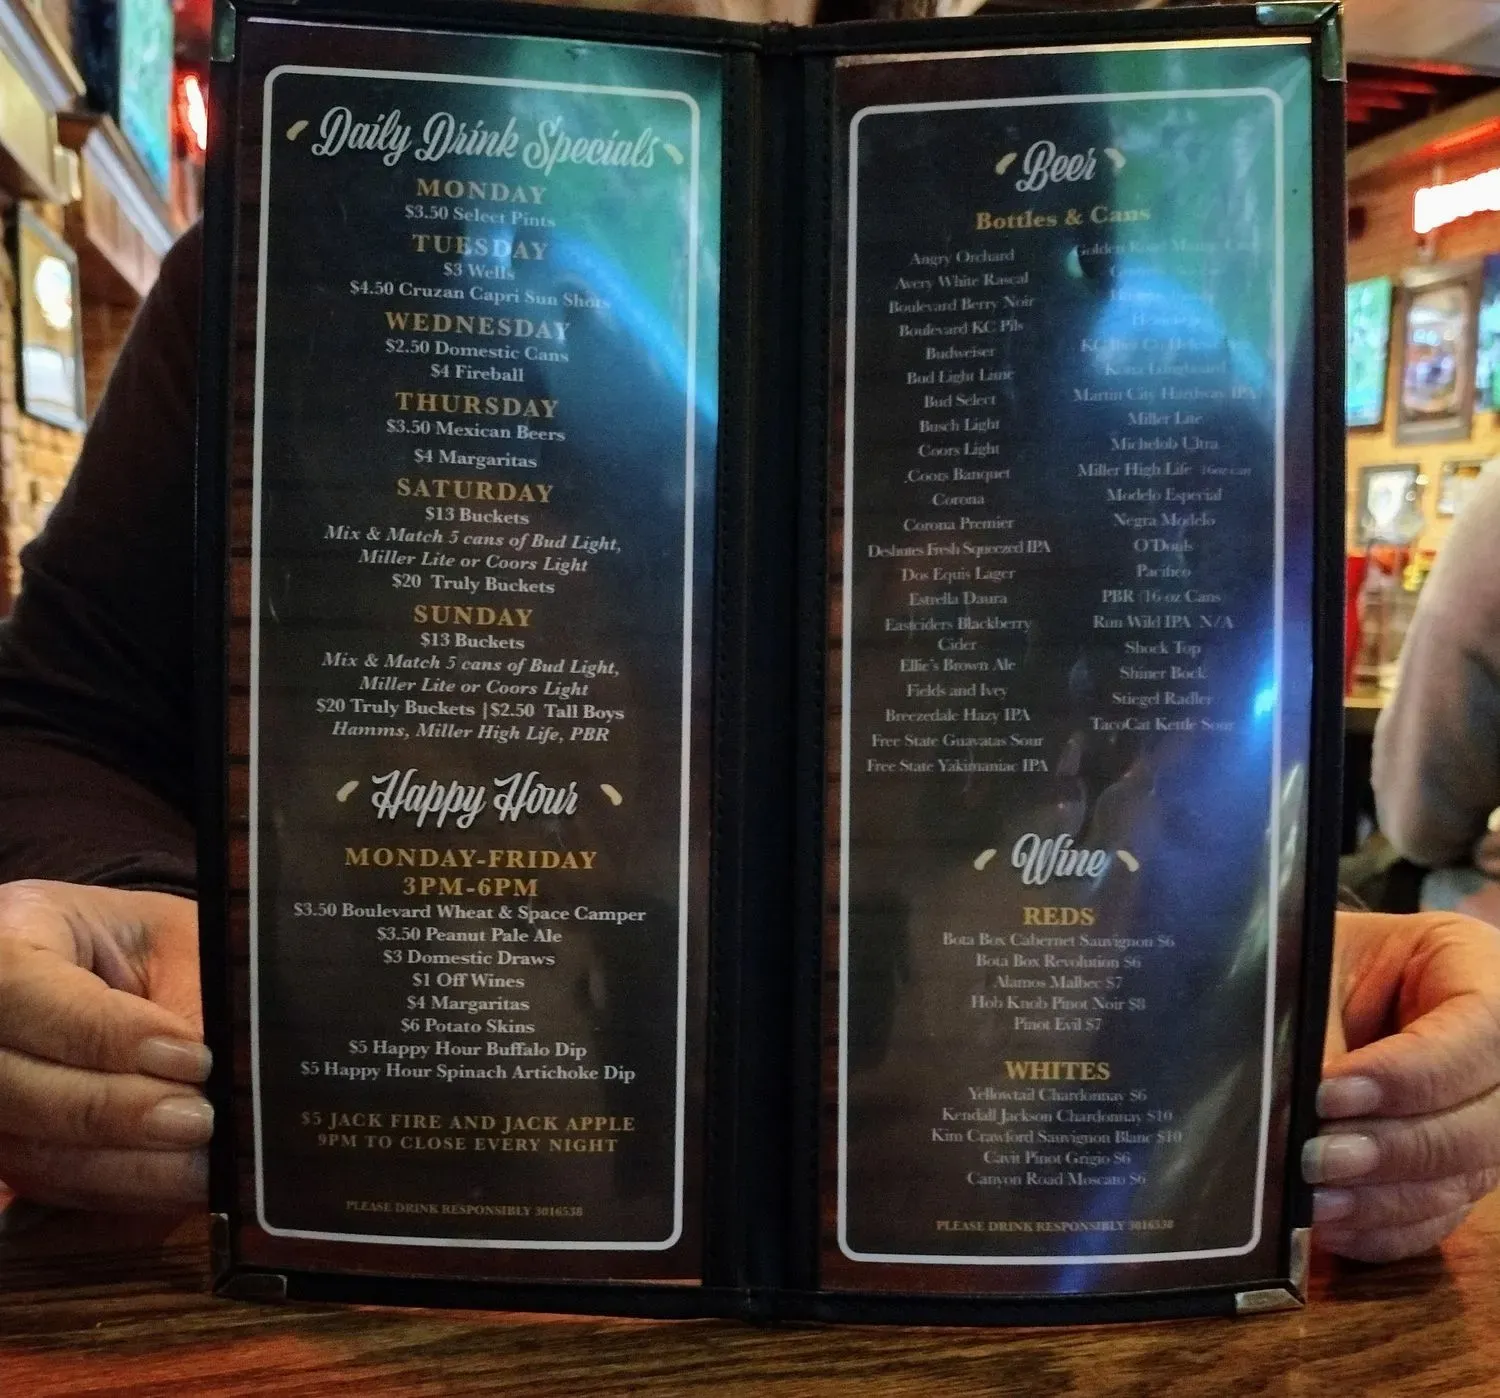 Daily Drink Specials
MONDAY
$3.50 Select Pints
TUESDAY
$3 Wells
$4.50 Cruzan Capri Sun Shots
WEDNESDAY
$2.50 Domestic Cans
$4 Fireball
THURSDAY
$3.50 Mexican Beers
$4 Margaritas
SATURDAY
$13 Buckets
Mix & Match 5 cans of Bud Light,
Miller Lite or Coors Light
$20 Truly Buckets
SUNDAY
$13 Buckets
Mix & Match 5 cans of Bud Light,
Miller Lite or Coors Light
$20 Truly Buckets | $2.50 Tall Boys
Hamms, Miller High Life, PBR
Happy Hour
MONDAY-FRIDAY
3PM-6PM
$3.50 Boulevard Wheat & Space Camper
$3.50 Peanut Pale Ale
$3 Domestic Draws
$1 Off Wines
$4 Margaritas
$6 Potato Skins
$5 Happy Hour Buffalo Dip
$5 Happy Hour Spinach Artichoke Dip
$5 JACK FIRE AND JACK APPLE
9PM TO CLOSE EVERY NIGHT
PLEASE DRINK RESPONSIBLY 3016538
Beer
Bottles & Cans
Angry Orchard
Avery White Rascal
Boulevard Berry Noir
Boulevard KC Pils
Budweiser
Bud Light Lime
Bud Select
Busch Light
Coors Light
Coors Banquet
Corona
Corona Premier
Deshutes Fresh Squeezed IPA
Dos Equis Lager
Estrella Daura
Eastciders Blackberry
Cider
Ellie's Brown Ale
Fields and Ivey
Breezedale Hazy IPA
Free State Guavatas Sour
Free State Yakimaniac IPA
Golden Road Mango
Kona Longboard
Martin City Hardway IPA
Miller Lite
Michelob Ultra
Miller High Life 16oz can
Modelo Especial
Negra Modelo
O'Douls
Pacifico
PBR (16 oz Cans
Run Wild IPA N/A
Shock Top
Shiner Bock
Stiegel Radler
TacoCat Kettle Sour
Wine
REDS
Bota Box Cabernet Sauvignon $6
Bota Box Revolution $6
Alamos Malbec $7
Hob Knob Pinot Noir $8
Pinot Evil $7
WHITES
Yellowtail Chardonnay $6
Kendall Jackson Chardonnay $10
Kim Crawford Sauvignon Blanc $10
Cavit Pinot Grigio $6
Canyon Road Moscato $6
PLEASE DRINK RESPONSIBLY 3016538